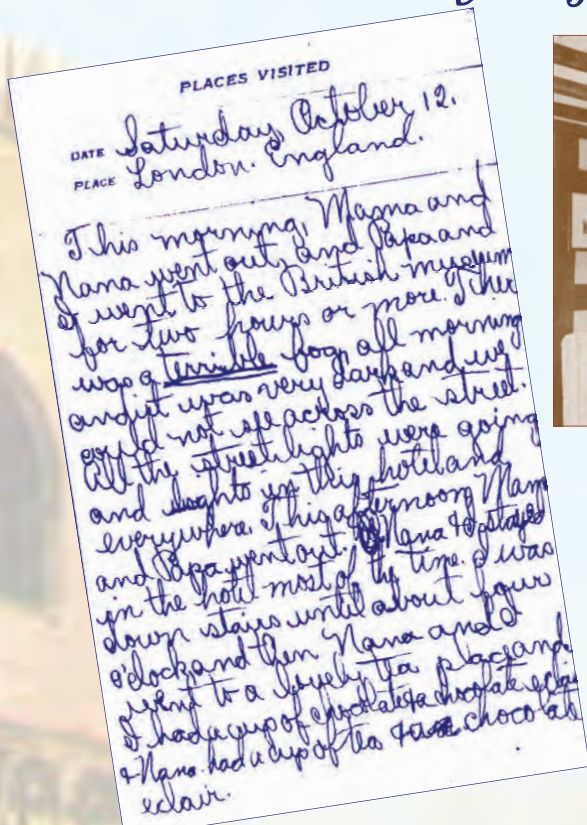 PLACES VISITED
DATE Saturday, October 12.
PLACE London. England.
This morning, Mama and
Nana went out, and Papa and
I went to the British museum
for two hours or more. Ther
was a terrible fog, all morning
and it was very dark and we
could not see across the street.
All the street lights were going
and lights in this hotel and
everywhere. This afternoon, Mam
and Papa went out. Nana & I stayed
in the hotel most of the time. I was
down stairs until about four
o'clock, and then Nana and I
went to a lovely tea place and
I had a cup of chocolate & a chocolate eclair
& Nana had a cup of tea & a chocolat
eclair.